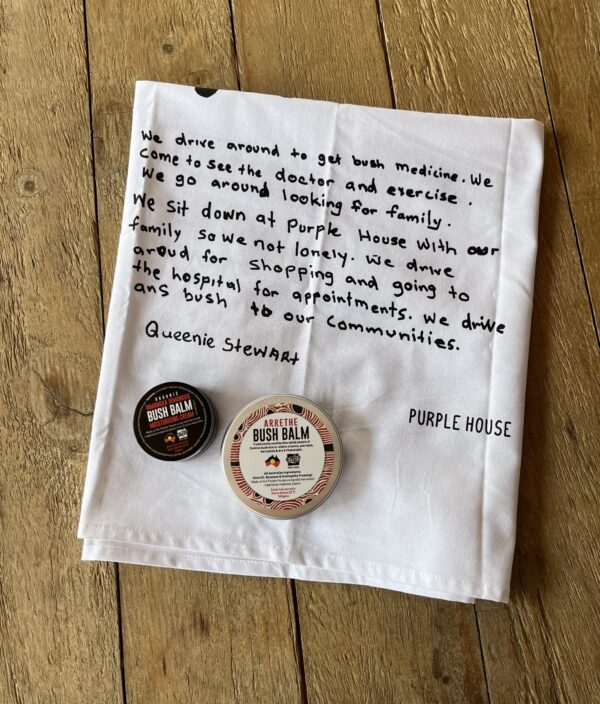 We drive around to get bush medicine. We
come to see the doctor and exercise.
We go around looking for family.
We sit down at Purple House with our
family so we not lonely. We drive
aroud for shopping and going to
the hospital for appointments. We drive
ans bush to our communities.
Queenie Stewart
PURPLE HOUSE
ORGANIC
IRMANGKA IRMANGKA
BUSH BALM
MOISTURISING CREAM
ARRETHE
BUSH BALM